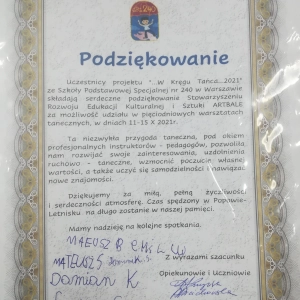 Podziękowanie
Uczestnicy projektu "...W Kręgu Tańca...2021"
ze Szkoły Podstawowej Specjalnej nr 240 w Warszawie
składają serdeczne podziękowanie Stowarzyszeniu
Rozwoju Edukacji Kulturalnej i Sztuki ARTBALE
za możliwość udziału w pięciodniowych warsztatach
tanecznych, w dniach 11-15 X 2021r.
Ta niezwykła przygoda taneczna, pod okiem
profesjonalnych instruktorów - pedagogów, pozwoliła
nam rozwijać swoje zainteresowania, uzdolnienia
ruchowo - taneczne, wzmocnić poczucie własnej
wartości, a także uczyć się samodzielności i nawiązać
nowe znajomości.
Dziękujemy za miłą, pełną życzliwości
i serdeczności atmosferę. Czas spędzony w Popowie-
Letnisku na długo zostanie w naszej pamięci.
Mamy nadzieję na kolejne spotkania.
Z wyrazami szacunku
MATEUSZ B
MATEUSZ S
Opiekunowie i Uczniowie
Damian K